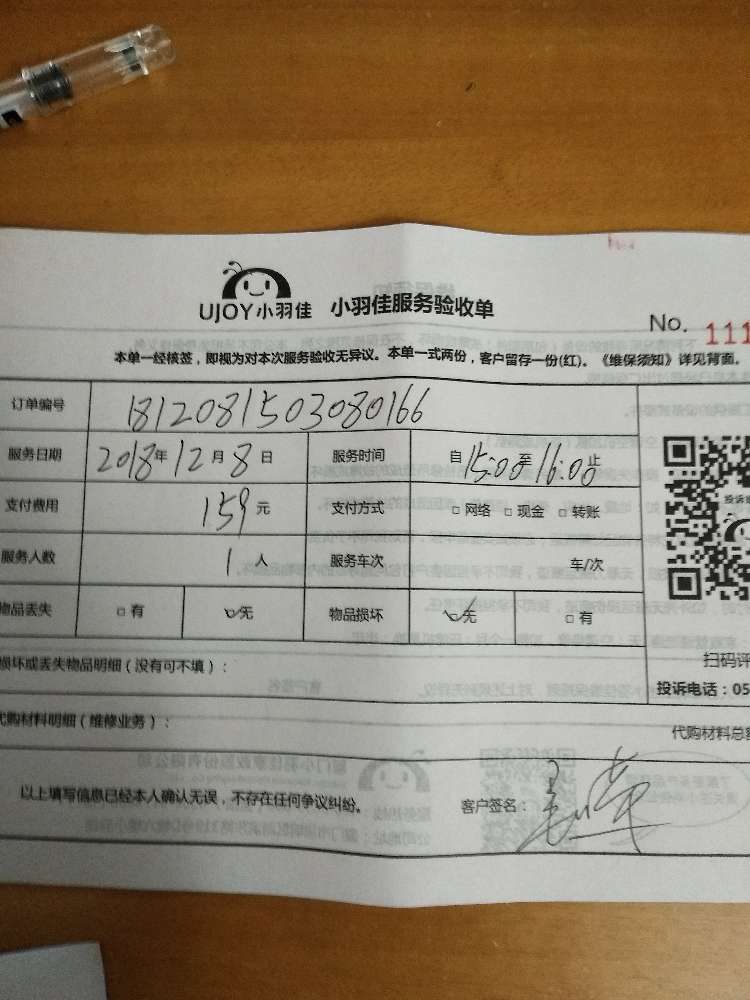 UJOY小羽佳 小羽佳服务验收单
No. 111
本单一经核签，即视为对本次服务验收无异议。本单一式两份，客户留存一份(红)。《维保须知》详见背面。
订单编号 1812081503080166
服务日期 2018年12月8日 服务时间 自15:00至16:00止
支付费用 159元 支付方式 □网络 □现金 □转账
服务人数 1人 服务车次 车/次
物品丢失 □有 ☑无 物品损坏 ☑无 □有
损坏或丢失物品明细（没有可不填）：
扫码评
投诉电话：05
代购材料明细（维修业务）：
代购材料总额
以上填写信息已经本人确认无误，不存在任何争议纠纷。 客户签名：